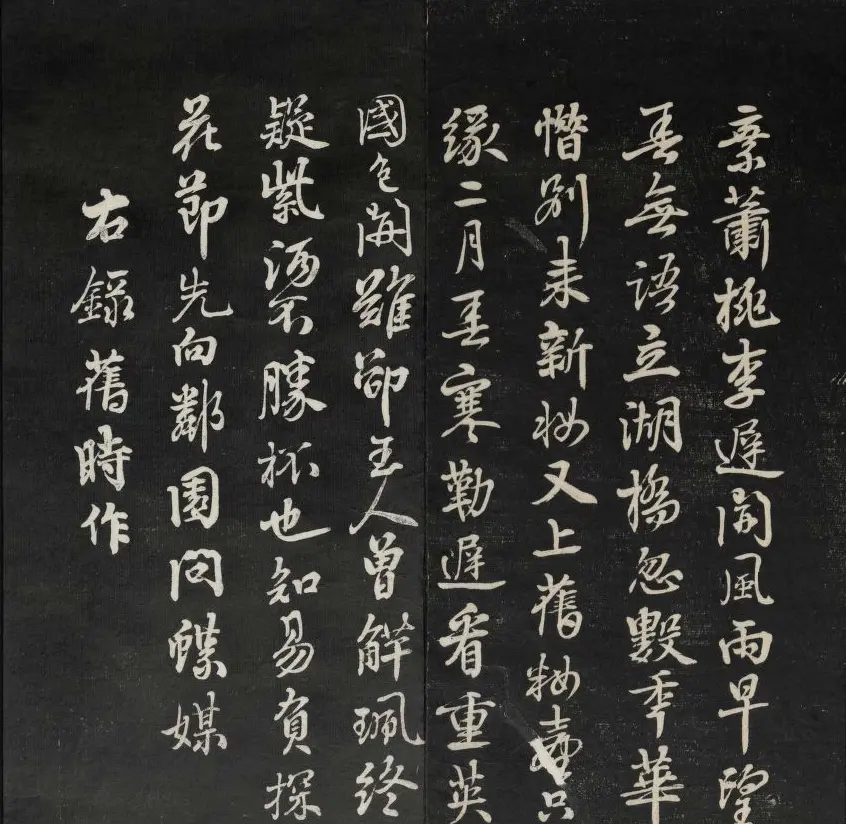 寂蕭桃李遲開風雨早望
春無語立湖橋忽數年華
惜別來新妝又上舊妝臺只
緣二月春寒勒遲看重英
國色開雖卻玉人曾解珮終
疑紫酒不勝杯也知易負探
花節先向鄰園問蝶媒
右錄舊時作